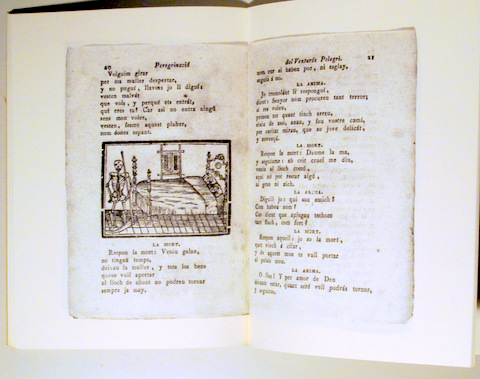 20 Peregrinació
Volguim girar
per ma muller despertar,
y no pogui, llavins jo li digui:
vestiu malvat
que vols, y perqué ets entrat,
qué eres tu? Car assi no entra ningú
sens mon voler,
vesten, fesme aquest plaher,
nom dones espant.
LA MORT.
Respon la mort: Veniu galan,
no tingau temps,
deixau la muller, y tots los bens
queus vull aportar
al lloch de ahont no podreu tornar
sempre ja may.
del Venturós Pelegrí. 21
nom cur si habeu por, ni esglay,
seguiu á mi.
LA ANIMA.
Jo tremolant li responguí,
dient: Senyor nom procureu tant terror;
si eus voleu,
preneu tot quant tinch arreu,
vixca de assi, anau, y feu vostre camí,
per caritat mirau, que so jove
y
LA MORT.
Respon la mort: Deume la ma,
y seguiume: ab crit cruel me diu,
veniu al lloch
aquí no pot restar algú,
si gran ni xich.
LA ANIMA.
Diguli jo: qui sou amich?
Com habeu nom?
Car dient que apingau tothom
tan flach, com fort?
LA MORT.
Respon aquell: jo so la mort,
que vinch á citar,
y de aquest mon te vull portar
si prest mes.
LA ANIMA.
O Per amor de Deu
deixau estar, quant aixó vell podrés tornar,
y seguiu